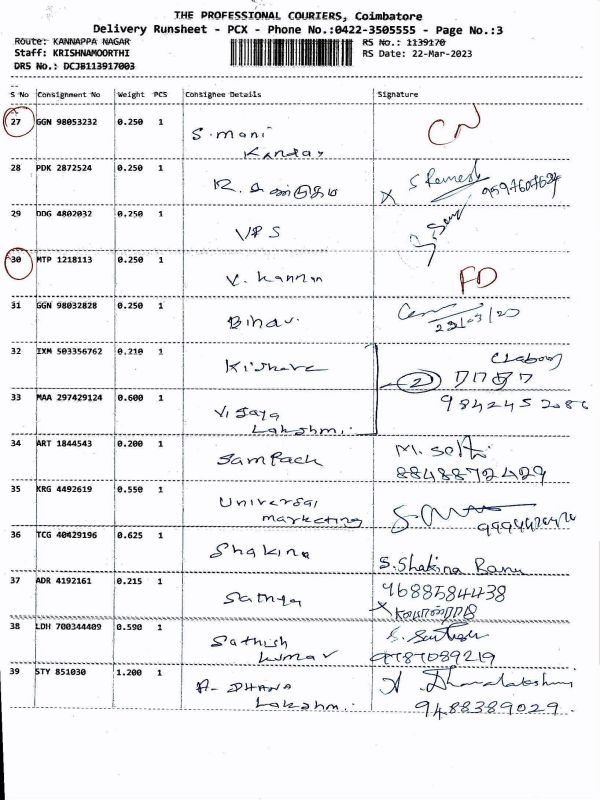 THE PROFESSIONAL COURIERS, Coimbatore
Delivery Runsheet - PCX - Phone No.:0422-3505555 - Page No.:3
Route: KANNAPPA NAGAR RS No.: 1139170
Staff: KRISHNAMOORTHI RS Date: 22-Mar-2023
DRS No.: DCJB113917003
S No Consignment No Weight PCS Consignee Details Signature
27 GGN 98053232 0.250 1 S. mani
28 PDK 2872524 0.250 1 X S Ramesh
29 DDG 4802032 0.250 1 VPS
30 MTP 1218113 0.250 1 V. Kannan FD
31 GGN 98032828 0.250 1
32 IXM 503356762 0.210 1 Kishore
33 MAA 297429124 0.600 1 Vijaya 2
Lakshmi
34 ART 1844543 0.200 1 Sampath
8848872429
35 KRG 4492619 0.550 1 Universal
marketing
36 TCG 40429196 0.625 1 Shakina S. Shakina Banu
37 ADR 4192161 0.215 1 Sathya 9688584438
38 LDH 700344409 0.590 1 Sathish
Kumar 9787089219
39 STY 851030 1.200 1 A- DHANA A Dhanalakshmi
Lakshmi 9488389029